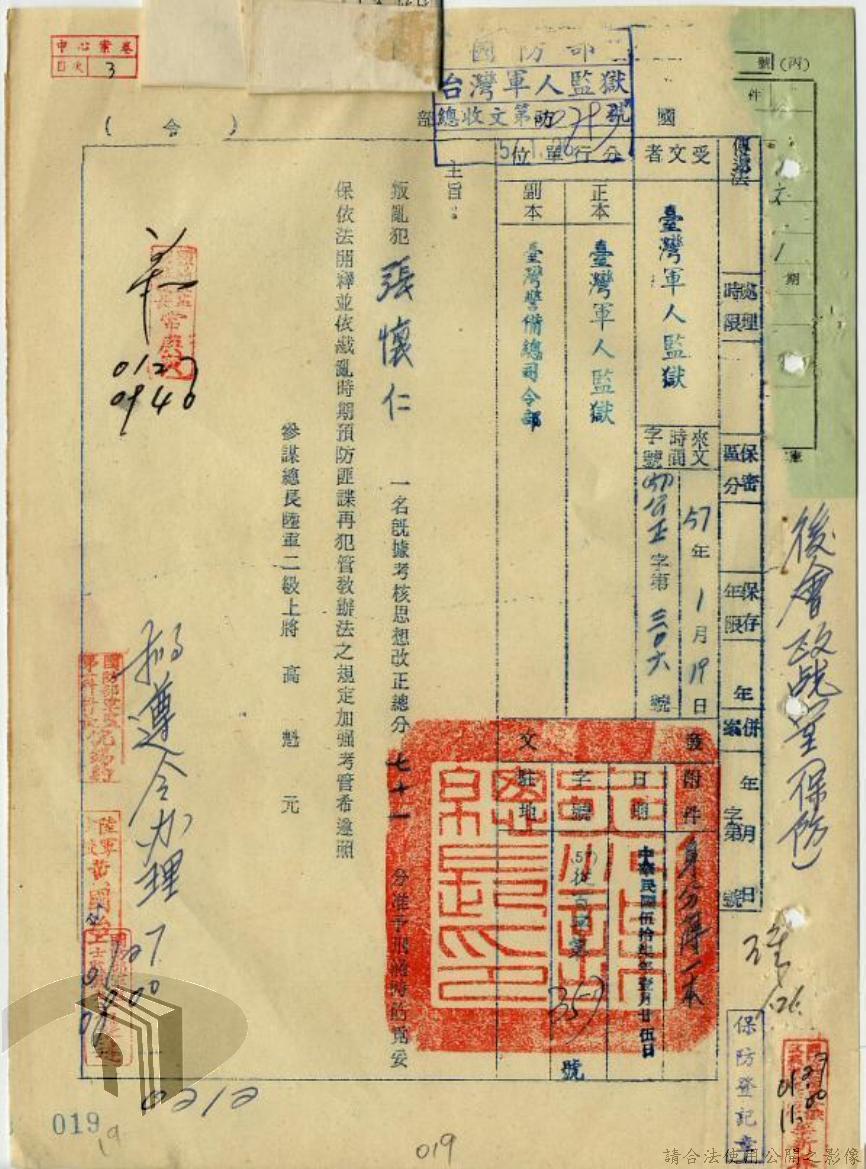 中心案卷
目次 3
號 (丙)
件
期
國防部
台灣軍人監獄
總收文第 號
國 部 (令)
傳遞法
處理時限
保密區分
保存年限 年
併案 年 月 日 字第 號
受文者 臺灣軍人監獄
來文 時間 57年1月19日
字號 字第三〇六號
附件 身分簿一本
行文單位
正本 臺灣軍人監獄
副本 臺灣警備總司令部
發文
日期 中華民國伍拾柒年壹月廿伍日
字號 357 號
駐地
主旨：
叛亂犯 張懷仁 一名旣據考核思想改正總分 七十一 分准予刑滿時飭覓妥
保依法開釋並依戡亂時期預防匪諜再犯管敎辦法之規定加强考管希遵照
參謀總長陸軍二級上將 高魁元
後會政戰室(保防)
遵令办理
保防登記章
0127
0940
0212
019
019
19
請合法使用公開之影像